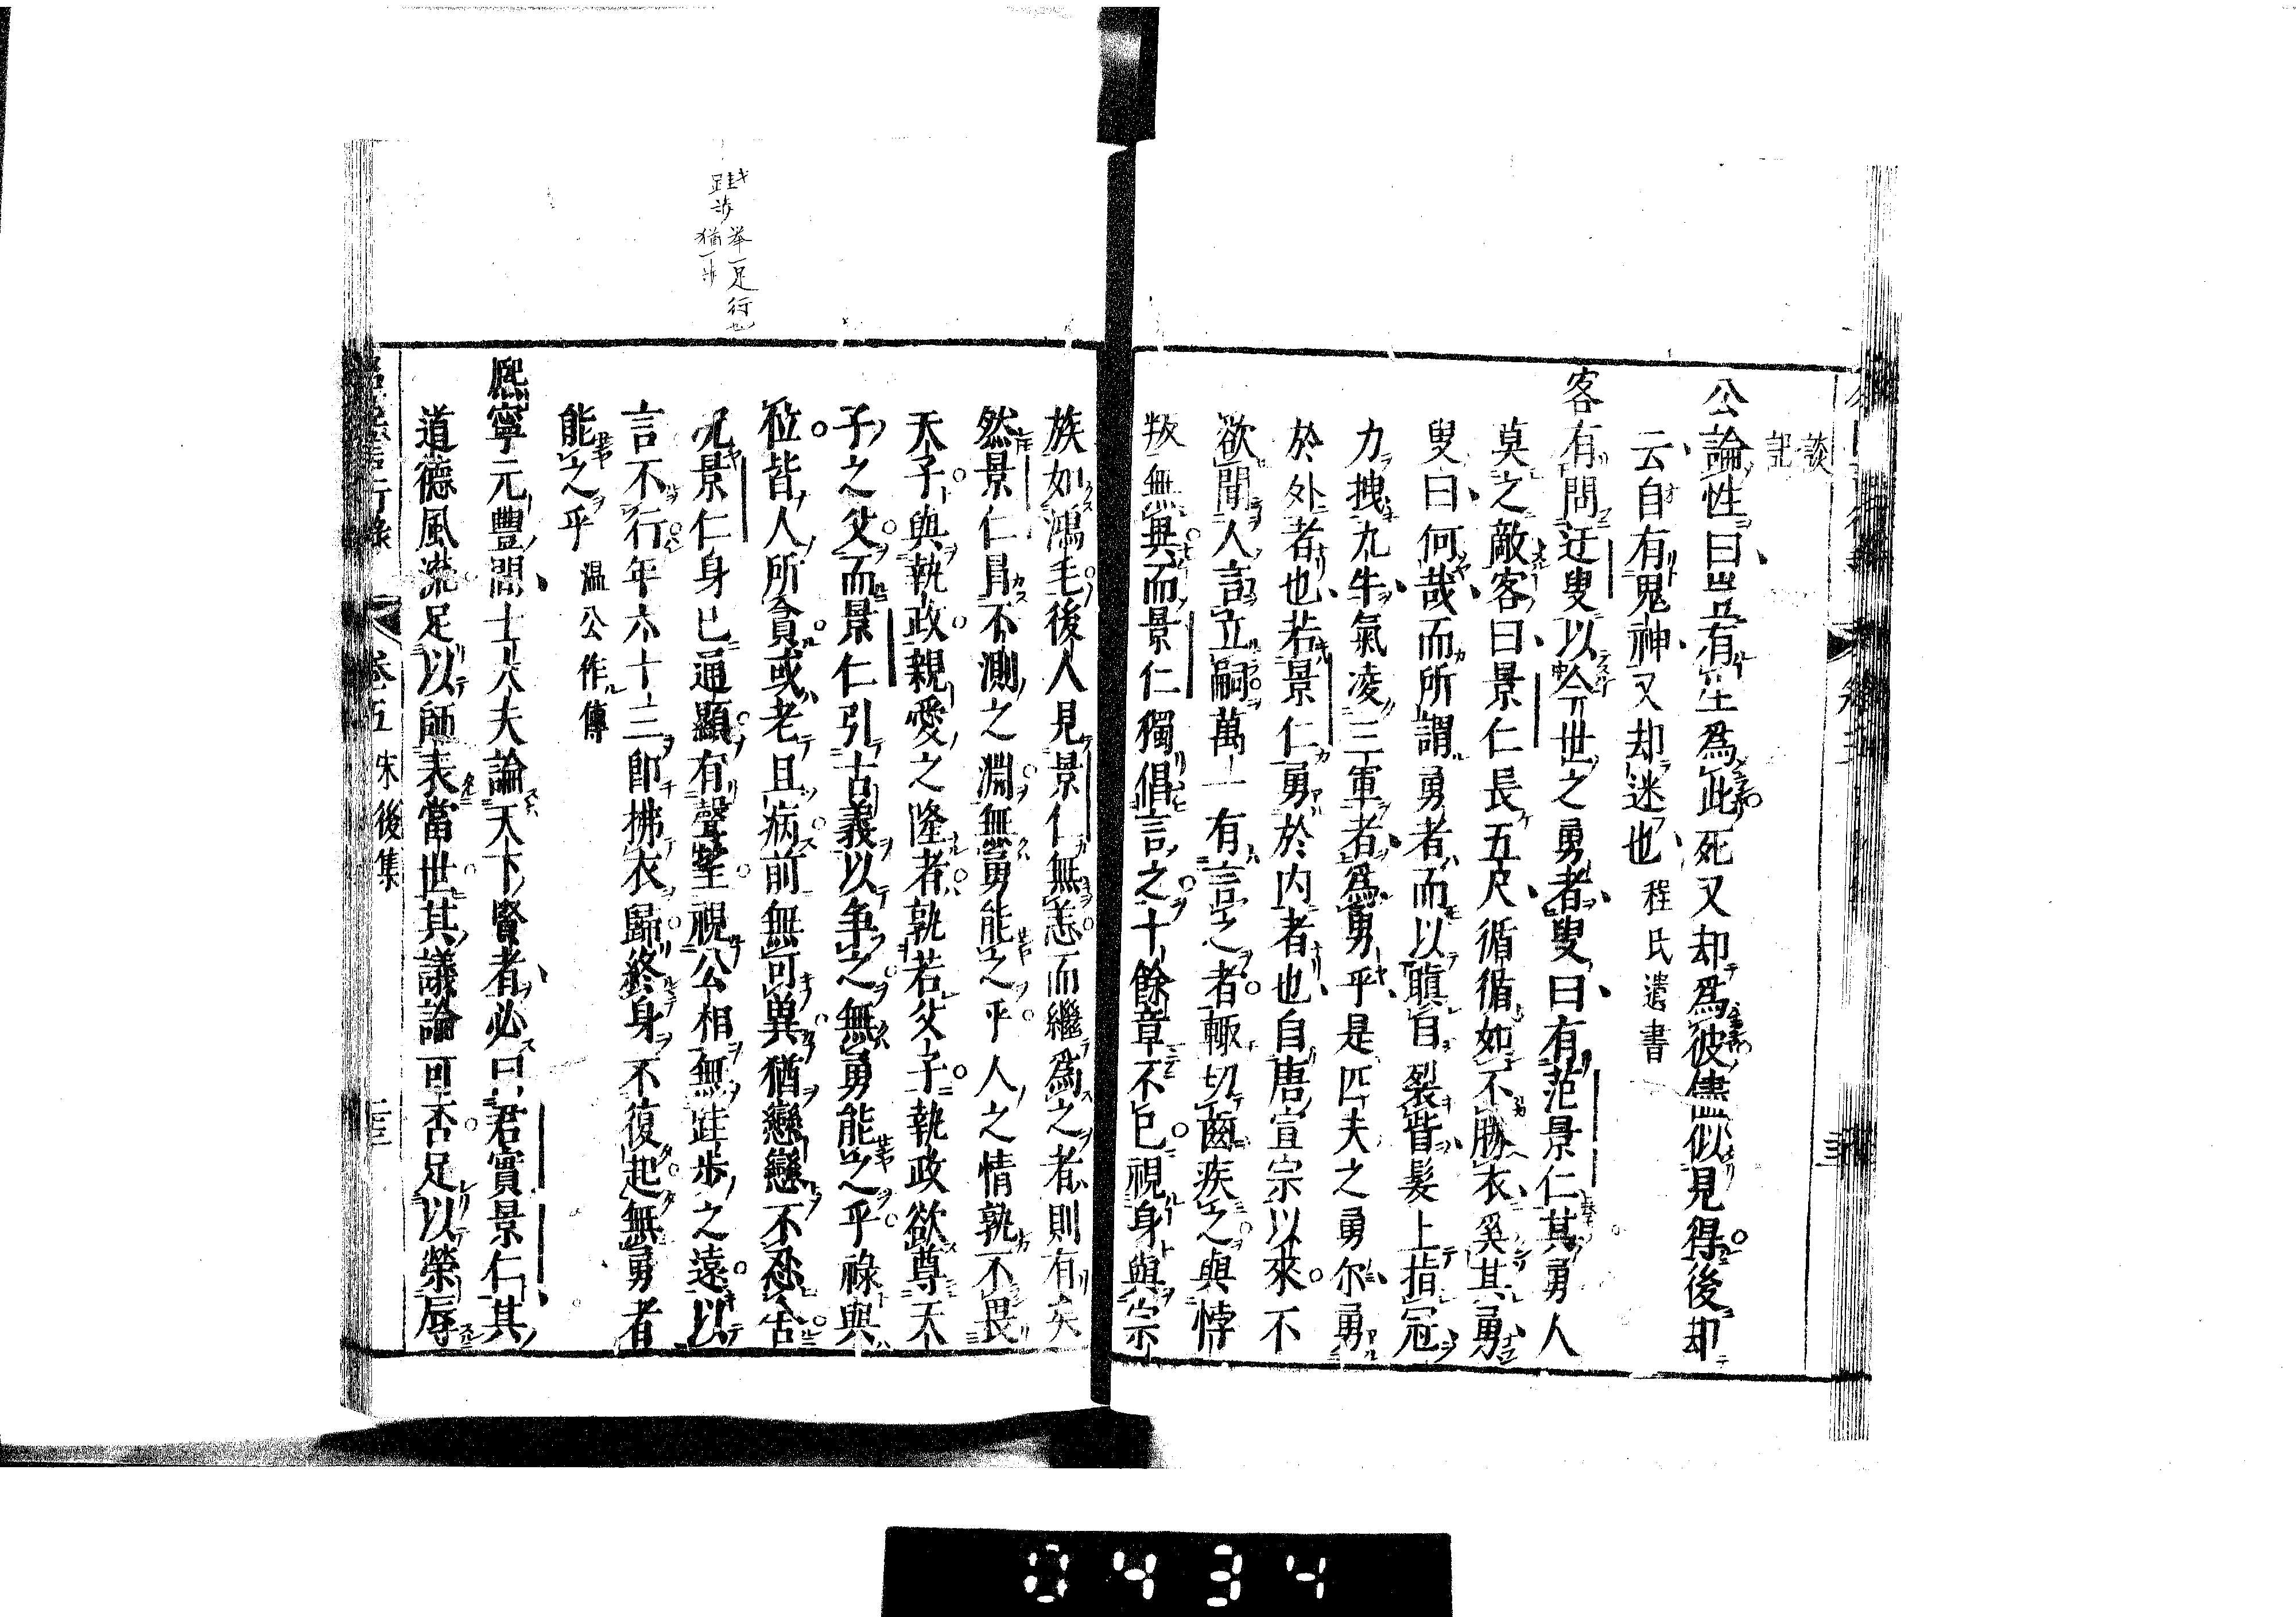 談
記
公論性曰豈有生爲此死又却爲彼儘似見得後却
云自有鬼神又却迷也 程氏遺書
客有問迂叟以今世之勇者叟曰有范景仁其勇人
莫之敵客曰景仁長五尺循循如不勝衣奚其勇
叟曰何哉而所謂勇者而以瞋目裂眥髮上指冠
力拽九牛氣凌三軍者爲勇乎是匹夫之勇尔勇
於外者也若景仁勇於内者也自唐宣宗以來不
欲聞人言立嗣萬一有言之者輙切齒疾之與悖
叛無異而景仁獨倡言之十餘章不已視身與宗
族如鴻毛後人見景仁無恙而繼爲之者則有矣
然景仁者不測之淵無勇能之乎人之情孰不畏
天子與執政親愛之隆者孰若父子執政欲尊天
子之父而景仁引古義以争之無勇能之乎祿與
位皆人所貪或老且病前無可異猶戀戀不忍舍
况景仁身已通顯有聲望視公相無跬歩之遠以
言不行年六十三即拂衣歸終身不復起無勇者
能之乎 温公作傳
熈寧元豐間士大夫論天下賢者必曰君實景仁其
道德風流足以師表當世其議論可否足以榮辱
卷五 宋後集
跬歩
挙一足行也
猶一歩
0434